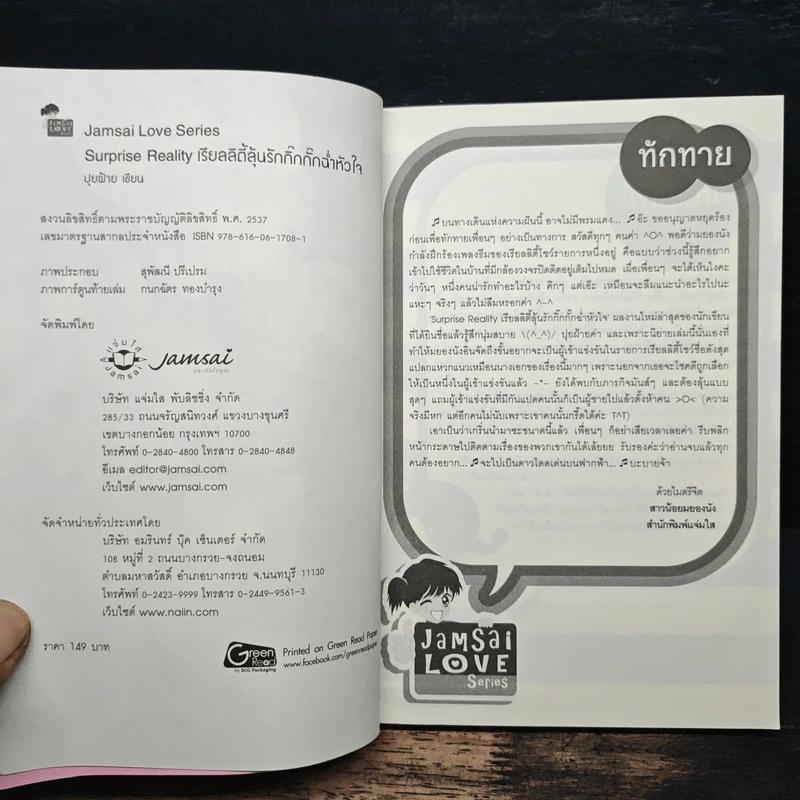 JAMSAI
LOVE
Jamsai Love Series
Surprise Reality เรียลลิตี้ลุ้นรักกิ๊กกั๊กฉ่ำหัวใจ
ปุยฝ้าย เขียน
สงวนลิขสิทธิ์ตามพระราชบัญญัติลิขสิทธิ์ พ.ศ. 2537
เลขมาตรฐานสากลประจำหนังสือ ISBN 978-616-06-1708-1
ภาพประกอบ สุพัฒณี ปรีเปรม
ภาพการ์ตูนท้ายเล่ม กนกฉัตร ทองบำรุง
จัดพิมพ์โดย
แจ่มใส
Jamsai
jamsai
บริษัท แจ่มใส พับลิชชิ่ง จำกัด
285/33 ถนนจรัญสนิทวงศ์ แขวงบางขุนศรี
เขตบางกอกน้อย กรุงเทพฯ 10700
โทรศัพท์ 0-2840-4800 โทรสาร 0-2840-4848
อีเมล editor@jamsai.com
เว็บไซต์ www.jamsai.com
จัดจำหน่ายทั่วประเทศโดย
บริษัท อมรินทร์ บุ๊ค เซ็นเตอร์ จำกัด
108 หมู่ที่ 2 ถนนบางกรวย-จงถนอม
ตำบลมหาสวัสดิ์ อำเภอบางกรวย จ.นนทบุรี 11130
โทรศัพท์ 0-2423-9999 โทรสาร 0-2449-9561-3
เว็บไซต์ www.naiin.com
ราคา 149 บาท
Green
Read
by SCG Packaging
Printed on Green Read Paper
www.facebook.com/greenreadpaper
ทักทาย
♫ บนทางเดินแห่งความฝันนี้ อาจไม่มีพรมแดง... ♫ อ๊ะ ขออนุญาตหยุดร้อง
ก่อนเพื่อทักทายเพื่อนๆ อย่างเป็นทางการ สวัสดีทุกๆ คนค่า ^O^ พอดีว่ามยองนัง
กำลังฝึกร้องเพลงธีมของเรียลลิตี้โชว์รายการหนึ่งอยู่ คือแบบว่าช่วงนี้รู้สึกอยาก
เข้าไปใช้ชีวิตในบ้านที่มีกล้องวงจรปิดติดอยู่เต็มไปหมด เผื่อเพื่อนๆ จะได้เห็นไงคะ
ว่าวันๆ หนึ่งคนน่ารักทำอะไรบ้าง คิกๆ แต่เอ๊ะ เหมือนจะลืมแนะนำอะไรไปนะ
แหะๆ จริงๆ แล้วไม่ลืมหรอกค่า ^-^
'Surprise Reality เรียลลิตี้ลุ้นรักกิ๊กกั๊กฉ่ำหัวใจ' ผลงานใหม่ล่าสุดของนักเขียน
ที่ได้ยินชื่อแล้วรู้สึกนุ่มสบาย \(^_^)/ ปุยฝ้ายค่า และเพราะนิยายเล่มนี้นั่นเองที่
ทำให้มยองนังอินจัดถึงขั้นอยากจะเป็นผู้เข้าแข่งขันในรายการเรียลลิตี้โชว์ชื่อดังสุด
แปลกแหวกแนวเหมือนนางเอกของเรื่องนี้มากๆ เพราะนอกจากเธอจะโชคดีถูกเลือก
ให้เป็นหนึ่งในผู้เข้าแข่งขันแล้ว -*- ยังได้พบกับภารกิจมันส์ๆ และต้องลุ้นแบบ
สุดๆ แถมผู้เข้าแข่งขันที่มีกันแปดคนนั้นก็เป็นผู้ชายไปแล้วตั้งห้าคน >O< (ความ
จริงมีหก แต่อีกคนไม่นับเพราะเขาคนนั้นกรี๊ดได้ค่ะ T^T)
เอาเป็นว่าเกริ่นนำมาซะขนาดนี้แล้ว เพื่อนๆ ก็อย่าเสียเวลาเลยค่า รีบพลิก
หน้ากระดาษไปติดตามเรื่องของพวกเขากันได้เล้ยยย รับรองค่ะว่าอ่านจบแล้วทุก
คนต้องอยาก... ♫ จะไปเป็นดาวโดดเด่นบนฟากฟ้า... ♫ บะบายจ้า
ด้วยไมตรีจิต
สาวน้อยมยองนัง
สำนักพิมพ์แจ่มใส
JAMSAI
LOVE
Series